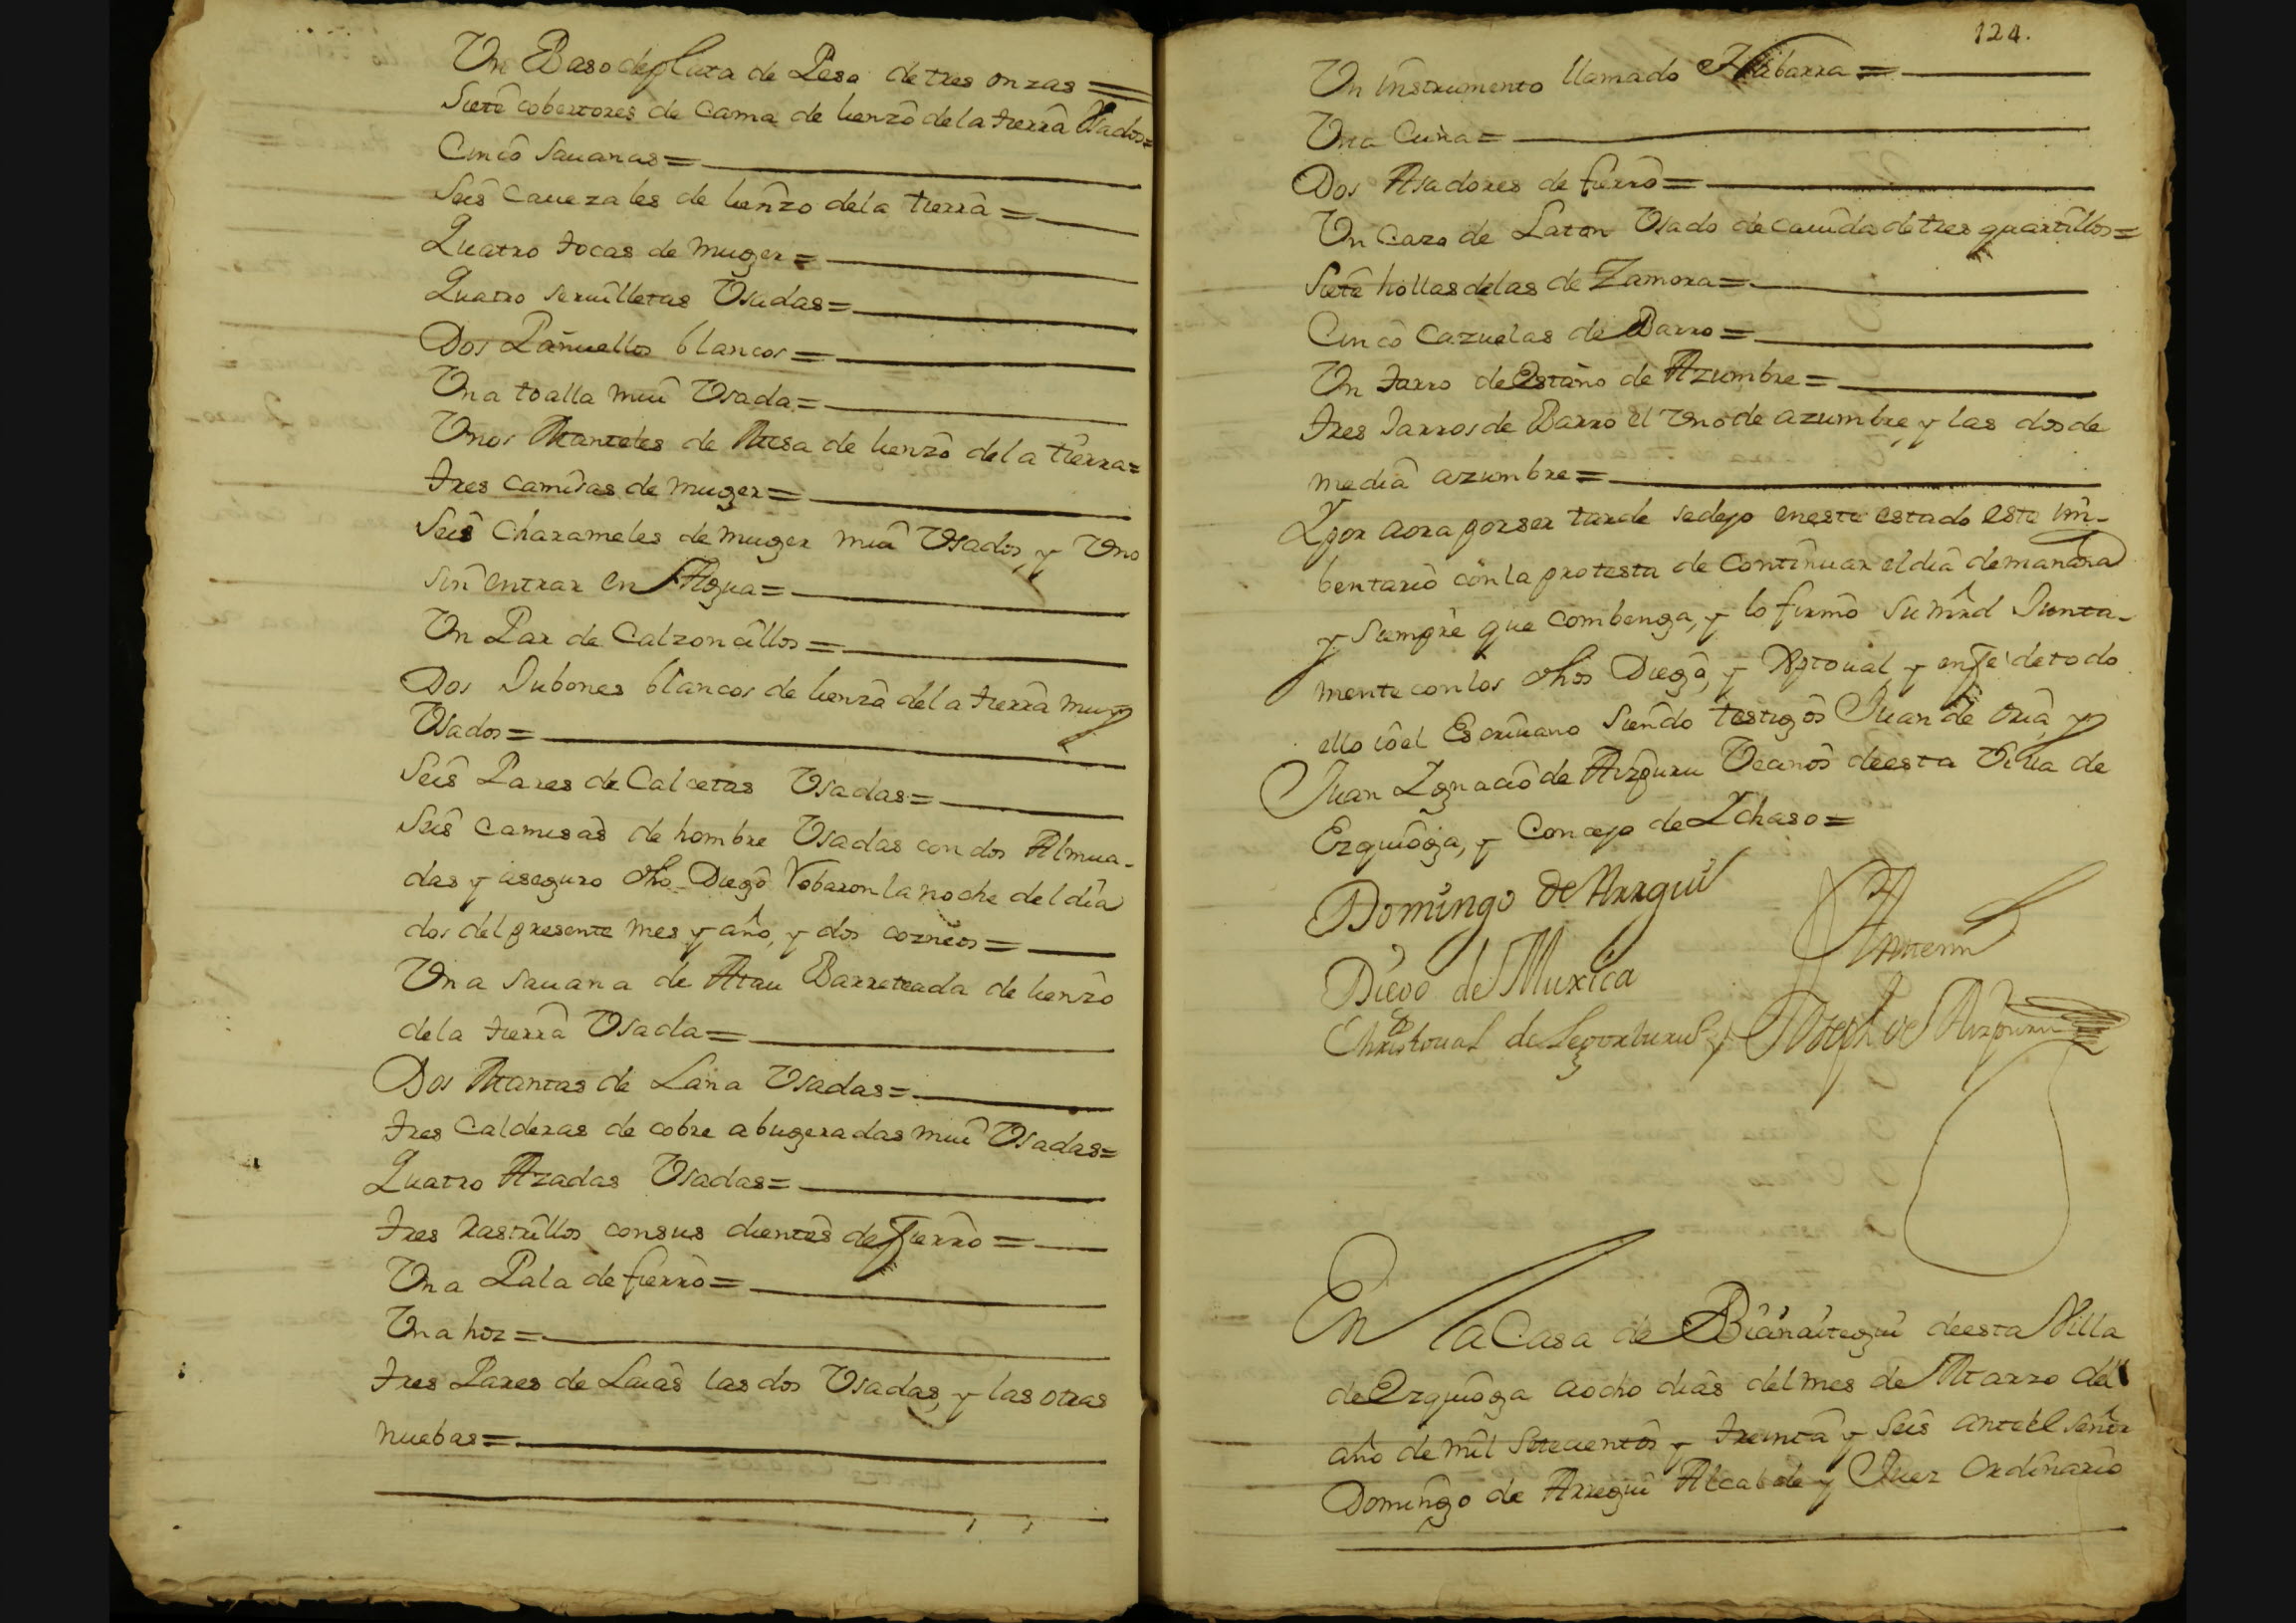 Un Baso de plata de Peso de tres onzas =
Siete cobertores de Cama de lienzo de la tierra Usados =
Cinco Sauanas =
Seis Cauezales de lienzo de la tierra =
Quatro tocas de muger =
Quatro seruilletas Usadas =
Dos Pañuellos blancos =
Una toalla mui Usada =
Unos Manteles de Mesa de lienzo de la tierra =
tres camisas de muger =
Seis Charameles de muger mui Usados, y Uno
sin entrar en Agua =
Un Par de Calzoncillos =
Dos Jubones blancos de lienzo de la tierra muy
Usados =
Seis Pares de Calcetas Usadas =
Seis camisas de hombre Usadas con dos Almua-
das y aseguro dho Diego Robaron la noche del dia
dos del presente mes y año, y dos
Una Sauana de Barreteada de lienzo
de la tierra Usada =
Dos Mantas de Lana Usadas =
tres Calderas de cobre abugeradas mui Usadas =
Quatro Azadas Usadas =
tres Rastrillos con sus dientes de fierro =
Una Pala de fierro =
Una hoz =
tres Pares de Laias las dos Usadas, y las otras
nuebas =
124.
Un instrumento llamado =
Una Cuña =
Dos Asadores de fierro =
Un Cazo de Laton Usado de cauida de tres quartillos =
Siete hollas de las de Zamora =
Cinco Cazuelas de Barro =
Un Jarro de Estaño de Azumbre =
tres Jarros de Barro el Uno de azumbre, y las dos de
media azumbre =
Y por aora por ser tarde se dejo en este estado este im-
bentario con la protesta de Continuar el dia de mañana
y siempre que combenga, y lo firmo su mrd Junta-
mente con los dhos Diego, y Xptoual, y en fe de todo
ello io el Escriuano siendo testigos Juan de Oria, y
Juan Ignacio de Aizpuru Vecinos de esta Villa de
Ezquioga, y Concejo de Ichaso =
Domingo de Arregui
Ante mi
Diego de Muxica
Christoual de Joseph de Aizpuru
En la Casa de Bianaitegui de esta Villa
de Ezquioga a ocho dias del mes de Marzo del
año de mil Setecientos y treinta y Seis ante el señor
Domingo de Arregui Alcalde y Juez Ordinario